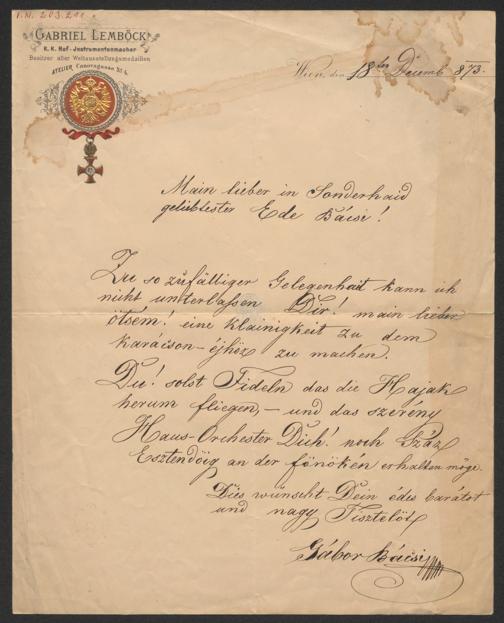 I.N. 203.211
GABRIEL LEMBÖCK
K. K. Hof-Instrumentenmacher
Besitzer aller Weltausstellungsmedaillen
ATELIER Canovagasse № 4.
Wien, den 18ten Decemb 873.
Main lieber in Sonderhaid
geliebtester Ede Bácsi!
Zu so zufälliger Gelegenhait kann ich
nicht unterlassen Dir! main lieber
ötsém! eine klainigkeit zu dem
karácson-éjhöz zu machen.
Du! solst Fideln das die Hajak
herum fliegen,- und das szerény
Haus-Orchester Dich! noch Száz
Esztendöig an der fönökén erhalten möge.
Diés wünscht Dein édes barátot
und nagy Tisztelöt
Gábor Bácsi